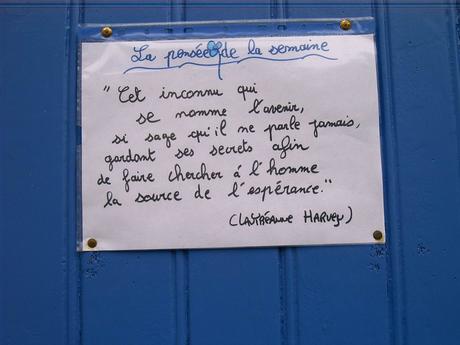 La pensée de la semaine
"Cet inconnu qui
se nomme l'avenir,
si sage qu'il ne parle jamais,
gardant ses secrets afin
de faire chercher à l'homme
la source de l'espérance."
(Lautréanne Harvey)